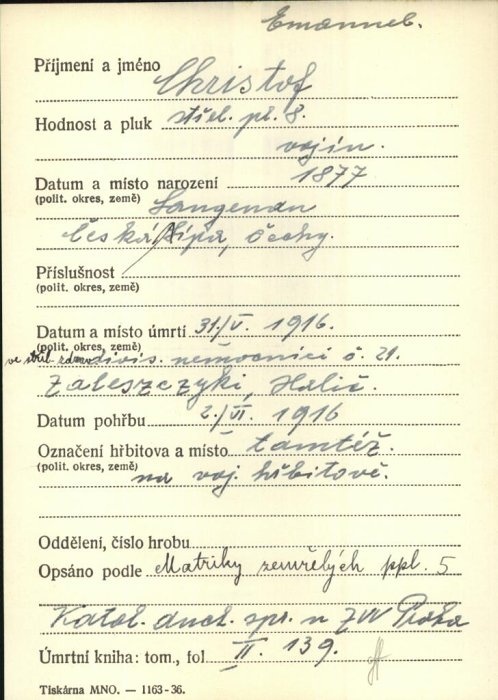 Emannel.
Příjmení a jméno Christof
Hodnost a pluk střel. pl. 8.
vojín.
Datum a místo narození 1877
(polit. okres, země) Langenau
Česká Lípa, Čechy.
Příslušnost
(polit. okres, země)
Datum a místo úmrtí 31/V. 1916.
(polit. okres, země)
ve střel. zdrav. divis. nemocnici č. 21.
Zaleszczyki, Halič.
Datum pohřbu 2./VI. 1916
Označení hřbitova a místo tamtéž.
(polit. okres, země) na voj. hřbitově.
Oddělení, číslo hrobu
Opsáno podle Matriky zemřelých ppl. 5
Katol. duch. spr. u ZVV Praha
Úmrtní kniha: tom., fol. II. 139.
Tiskárna MNO. — 1163-36.